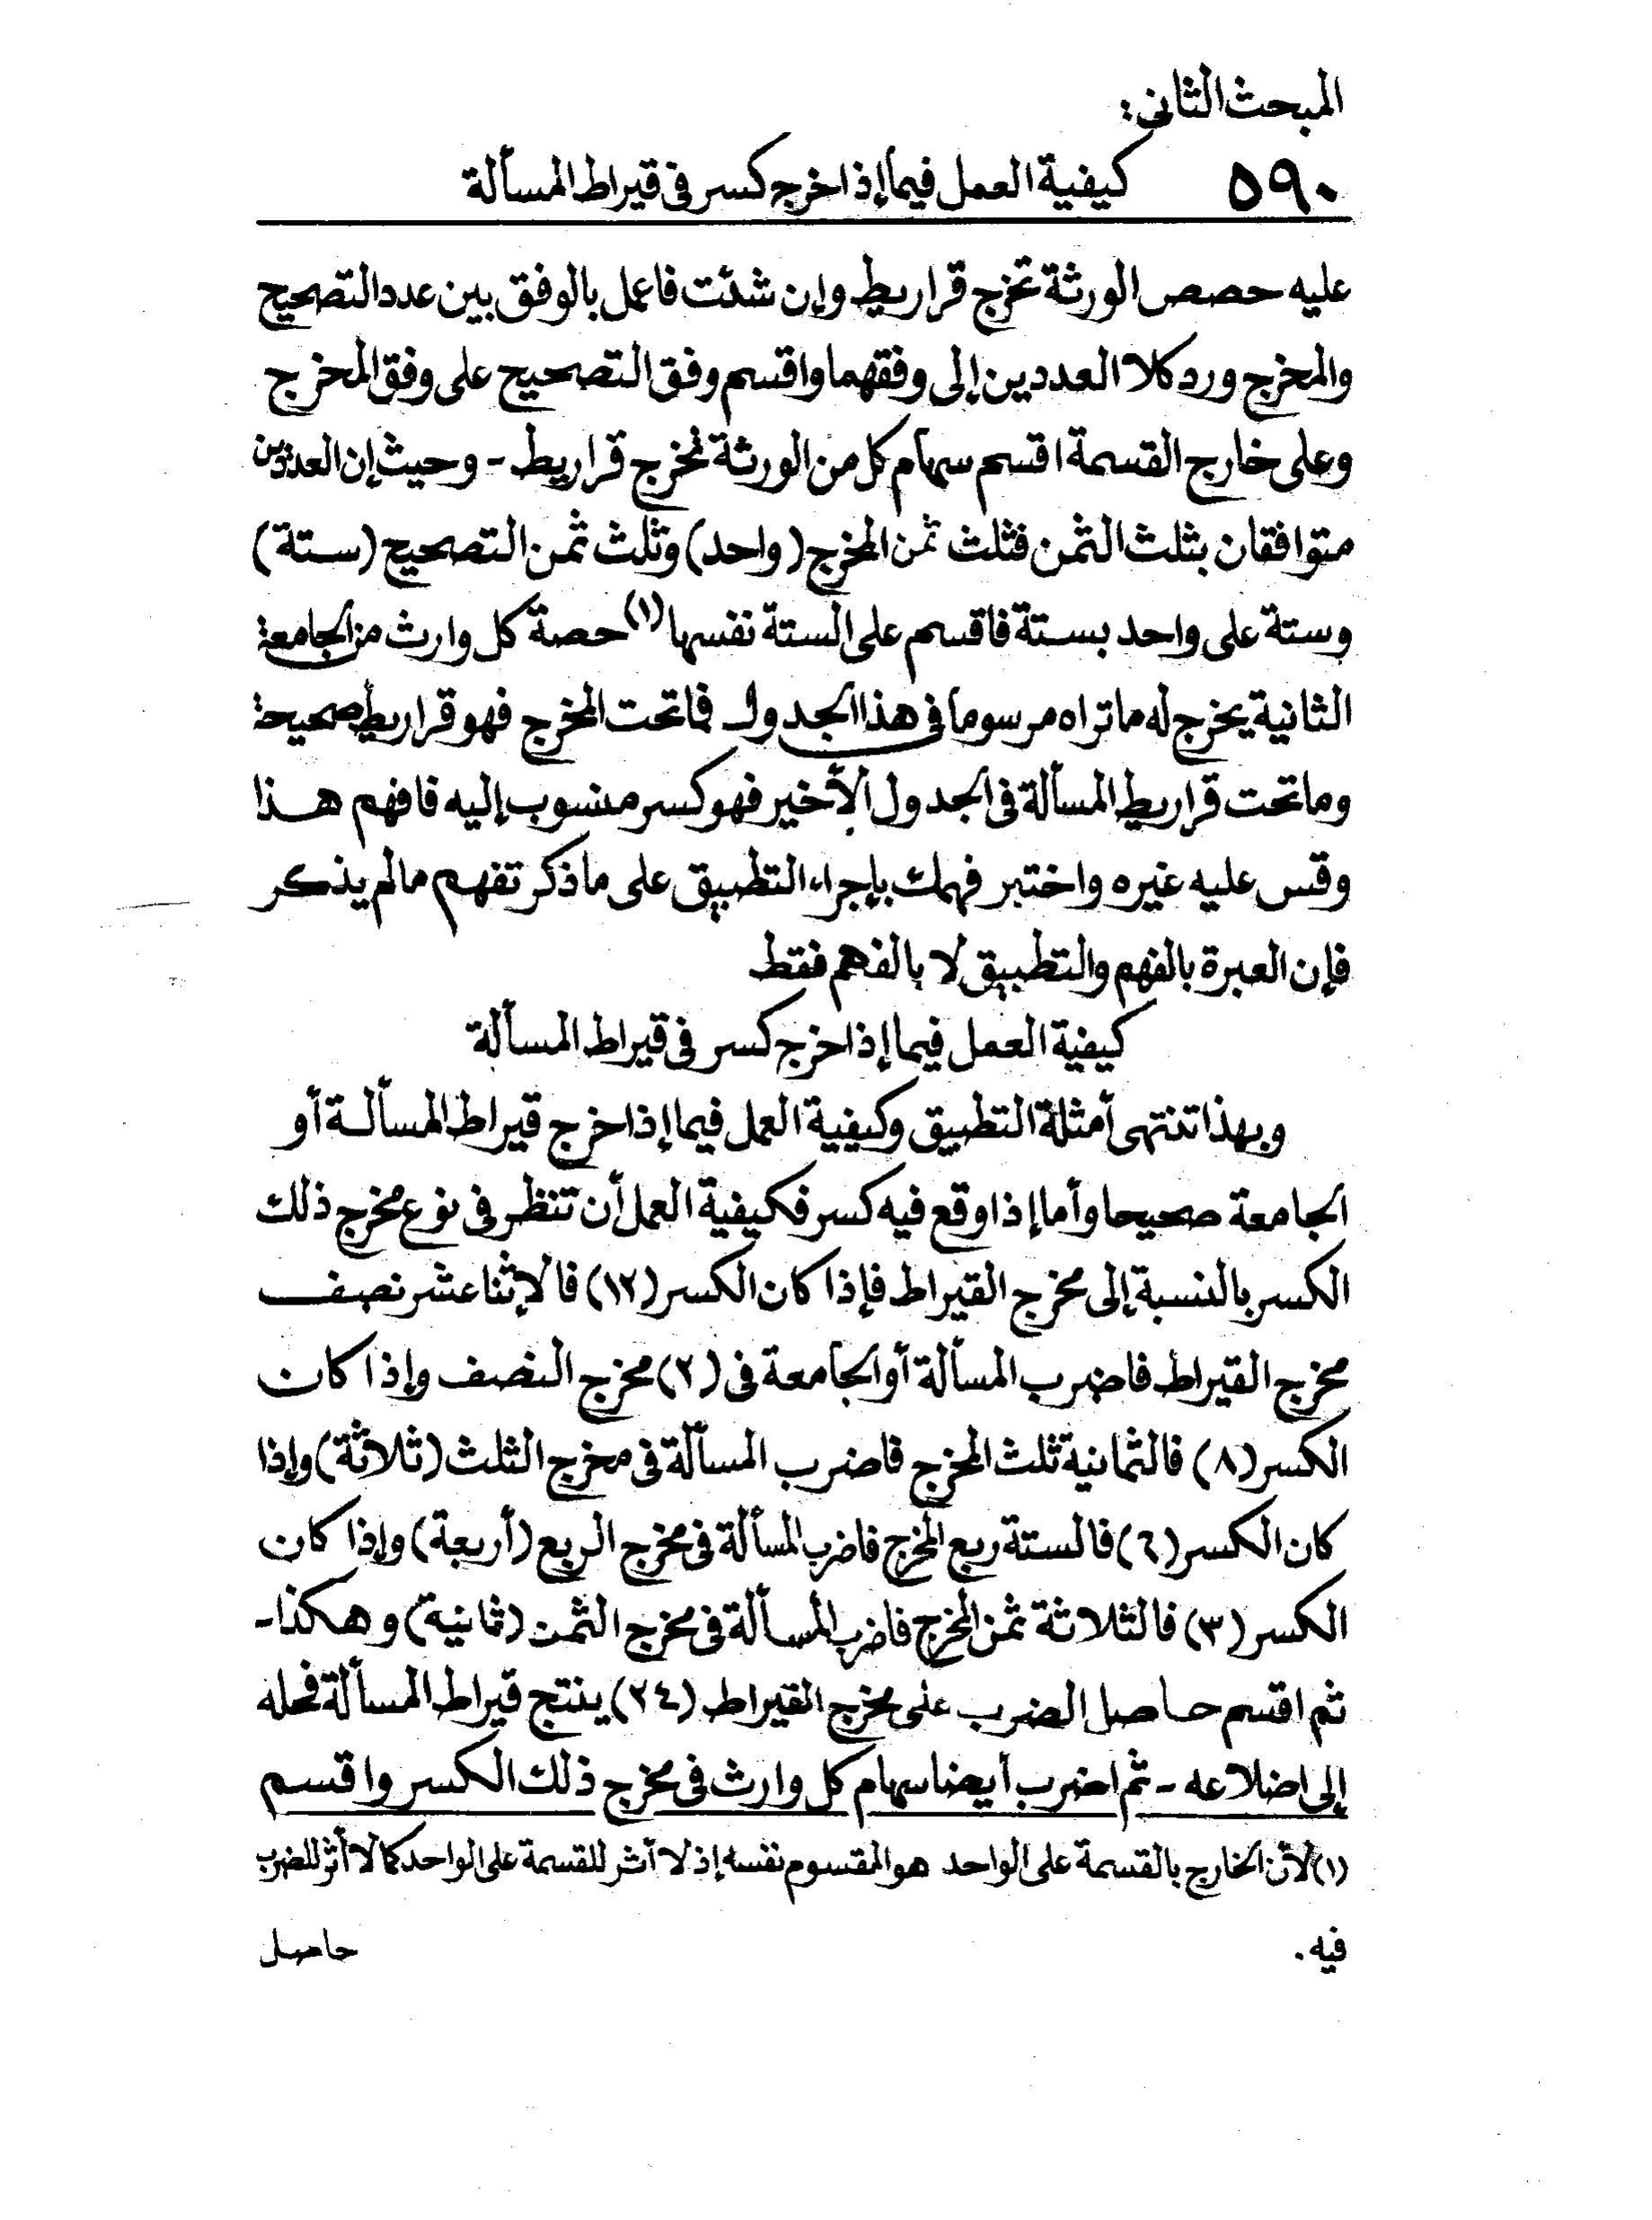 المبحث الثانى:
٥٩٠ كيفية العمل فيما إذا خرج كسر فى قيراط المسألة
عليه حصص الورثة تخرج قراريط وإن شئت فاعمل بالوفق بين عدد التصحيح
والمخرج ورد كلا العددين إلى وفقهما واقسم وفق التصحيح على وفق المخرج
وعلى خارج القسمة اقسم سهام كل من الورثة تخرج قراريط - وحيث إن العددين
متوافقان بثلث الثمن فثلث ثمن المخرج (واحد) وثلث ثمن التصحيح (ستة)
وستة على واحد بستة فاقسم على الستة نفسها (١) حصة كل وارث من الجامعة
الثانية يخرج له ما تراه مرسوما فى هذا الجدول فما تحت المخرج فهو قراريط صحيحة
وما تحت قراريط المسألة فى الجدول الأخير فهو كسر منسوب إليه فافهم هذا
وقس عليه غيره واختبر فهمك بإجراء التطبيق على ما ذكر تفهم مالم يذكر
فإن العبرة بالفهم والتطبيق لا بالفهم فقط
كيفية العمل فيما إذا خرج كسر فى قيراط المسألة
وبهذا تنتهى أمثلة التطبيق وكيفية العمل فيما إذا خرج قيراط المسألة أو
الجامعة صحيحا وأما إذا وقع فيه كسر فكيفية العمل أن تنظر فى نوع مخرج ذلك
الكسر بالنسبة إلى مخرج القيراط فإذا كان الكسر (١٢) فالإثنا عشر نصف
مخرج القيراط فاضرب المسألة أو الجامعة فى (٢) مخرج النصف وإذا كان
الكسر (٨) فالثمانية ثلث المخرج فاضرب المسألة فى مخرج الثلث (ثلاثة) وإذا
كان الكسر (٦) فالستة ربع المخرج فاضرب المسألة فى مخرج الربع (أربعة) وإذا كان
الكسر (٣) فالثلاثة ثمن المخرج فاضرب المسألة فى مخرج الثمن (ثمانية) وهكذا -
ثم اقسم حاصل الضرب على مخرج القيراط (٢٤) ينتج قيراط المسألة فحله
إلى اضلاعه - ثم اضرب أيضا سهام كل وارث فى مخرج ذلك الكسر واقسم
(١) لأن الخارج بالقسمة على الواحد هو المقسوم نفسه إذ لا أثر للقسمة على الواحد كما لا أثر للضرب
فيه . حاصل